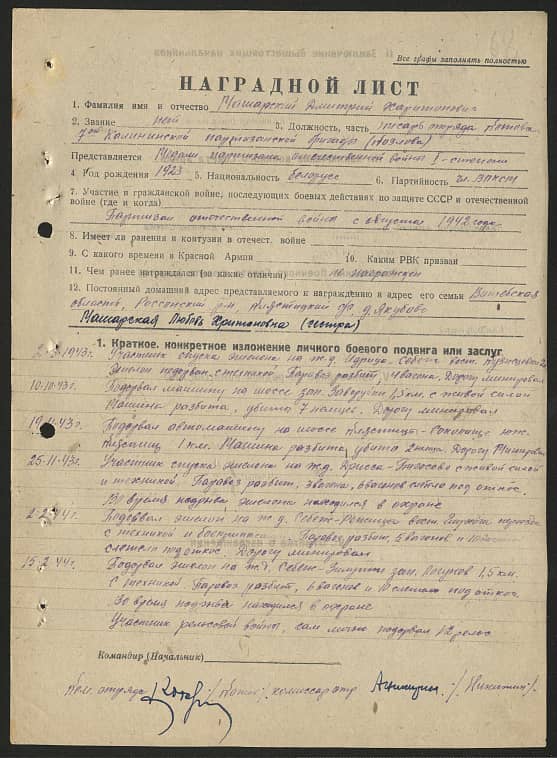 Все графы заполнять полностью
НАГРАДНОЙ ЛИСТ
1. Фамилия имя и отчество Машарский Дмитрий Харитонович
2. Звание 3. Должность, часть писарь отряда
Калининской партизанской бригады
Представляется Медали партизана отечественной войны I-степени
4 Год рождения 1923 5. Национальность белорус 6. Партийность чл. ВЛКСМ
7. Участие в гражданской войне, последующих боевых действиях по защите СССР и отечественной
войне (где и когда)
Партизан отечественной войны с августа 1942 года
8. Имеет ли ранения и контузии в отечест. войне
9. С какого времени в Красной Армии 10. Каким РВК призван
11. Чем ранее награждался (за какие отличия) не награжден
12. Постоянный домашний адрес представляемого к награждению и адрес его семьи Витебская
область, Россонский р-н, д. Якубово
Машарская Любовь Харитоновна (сестра)
1. Краткое, конкретное изложение личного боевого подвига или заслуг
1943г. Участник спуска эшелона на ж.д. Идрица Себеж вост.
Эшелон подорван с техникой. Паровоз разбит, 4 вагона. Дорогу минировал
10.10.43г. Подорвал машину на шоссе зап. 1,5 км. с живой силой
Машина разбита, убито 7 немцев. Дорогу минировал
43г. Подорвал автомашину на шоссе Клястицы-Соколище юж.
Клястиц 1 км. Машина разбита убито 2 Дорогу минировал
25.11.43г. Участник спуска эшелона на ж.д. Дрисса - с живой силой
и техникой. Паровоз разбит, вагона, вагонов под откос.
Во время подрыва эшелона находился в охране
2.2.44г. Подорвал эшелон на ж.д. Себеж - вост.
с техникой и Паровоз разбит, 5 вагонов и
слетели под откос. Дорогу минировал
15.2.44г. Подорвал эшелон на ж.д. Себеж - зап. 1,5 км.
с техникой. Паровоз разбит, 6 вагонов и 10 слетели под откос
Во время подрыва находился в охране
Участник рельсовой войны, сам лично подорвал 12 рельс
Командир (Начальник)
Ком. отряда /Котов/ комиссар отр. /Никитин/